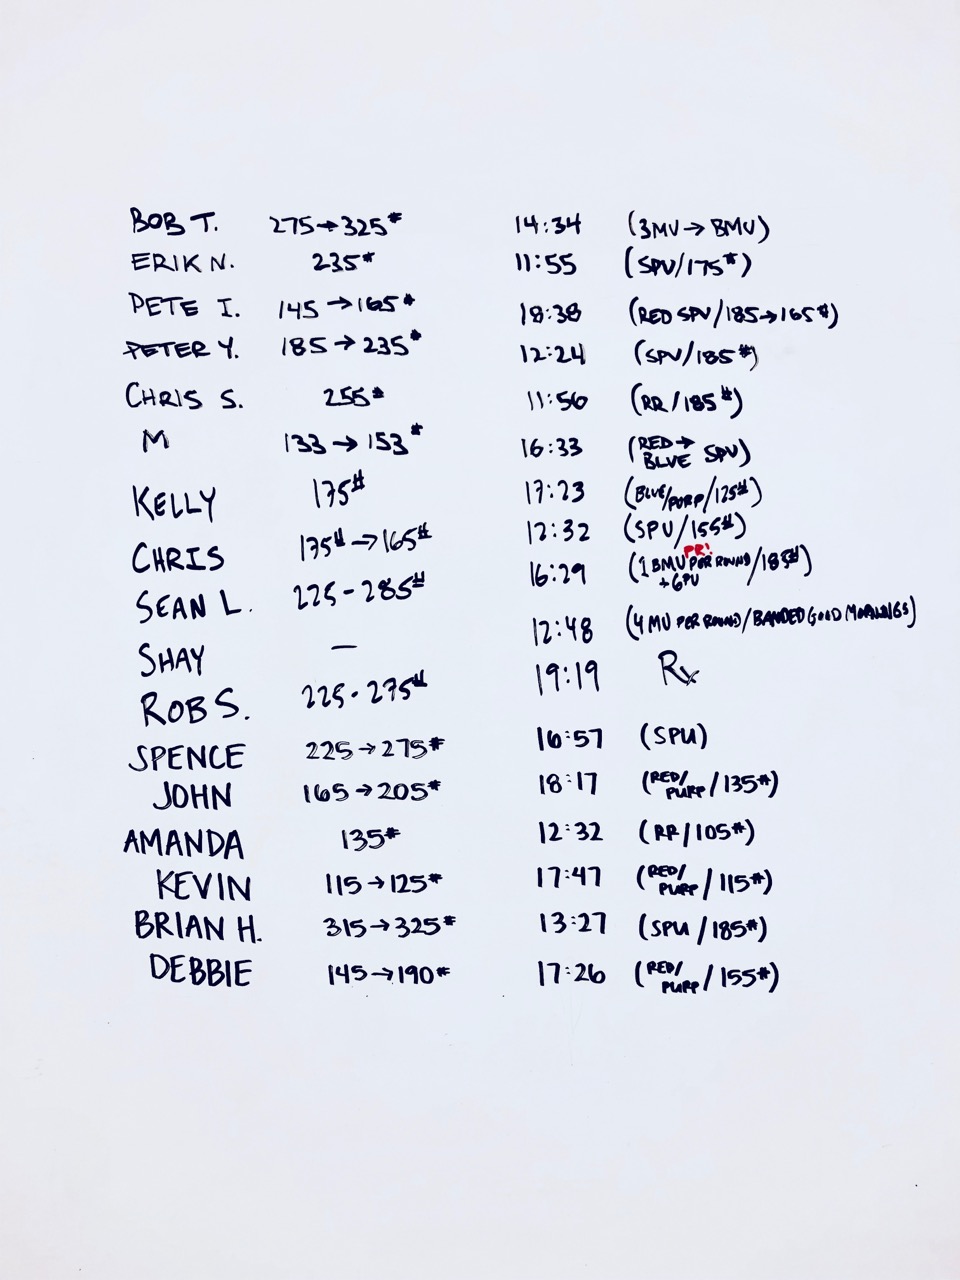 BOB T. 275→325# 14:34 (3MU→BMU)
ERIK N. 235# 11:55 (SPU/175#)
PETE I. 145→165# 18:38 (RED SPU/185→165#)
PETER Y. 185→235# 12:24 (SPU/185#)
CHRIS S. 255# 11:56 (RR/185#)
M 133→153# 16:33 (RED→BLUE SPU)
KELLY 175# 17:23 (BLUE/PURP/125#)
CHRIS 175#→165# 12:32 (SPU/155#)
PR!
SEAN L. 225-285# 16:29 (1 BMU PER ROUND/185#)
+6PU
SHAY — 12:48 (4 MU PER ROUND/BANDED GOOD MORNINGS)
ROB S. 225-275# 19:19 Rx
SPENCE 225→275# 16:57 (SPU)
JOHN 165→205# 18:17 (RED/PURP/135#)
AMANDA 135# 12:32 (RR/105#)
KEVIN 115→125# 17:47 (RED/PURP/115#)
BRIAN H. 315→325# 13:27 (SPU/185#)
DEBBIE 145→190# 17:26 (RED/PURP/155#)